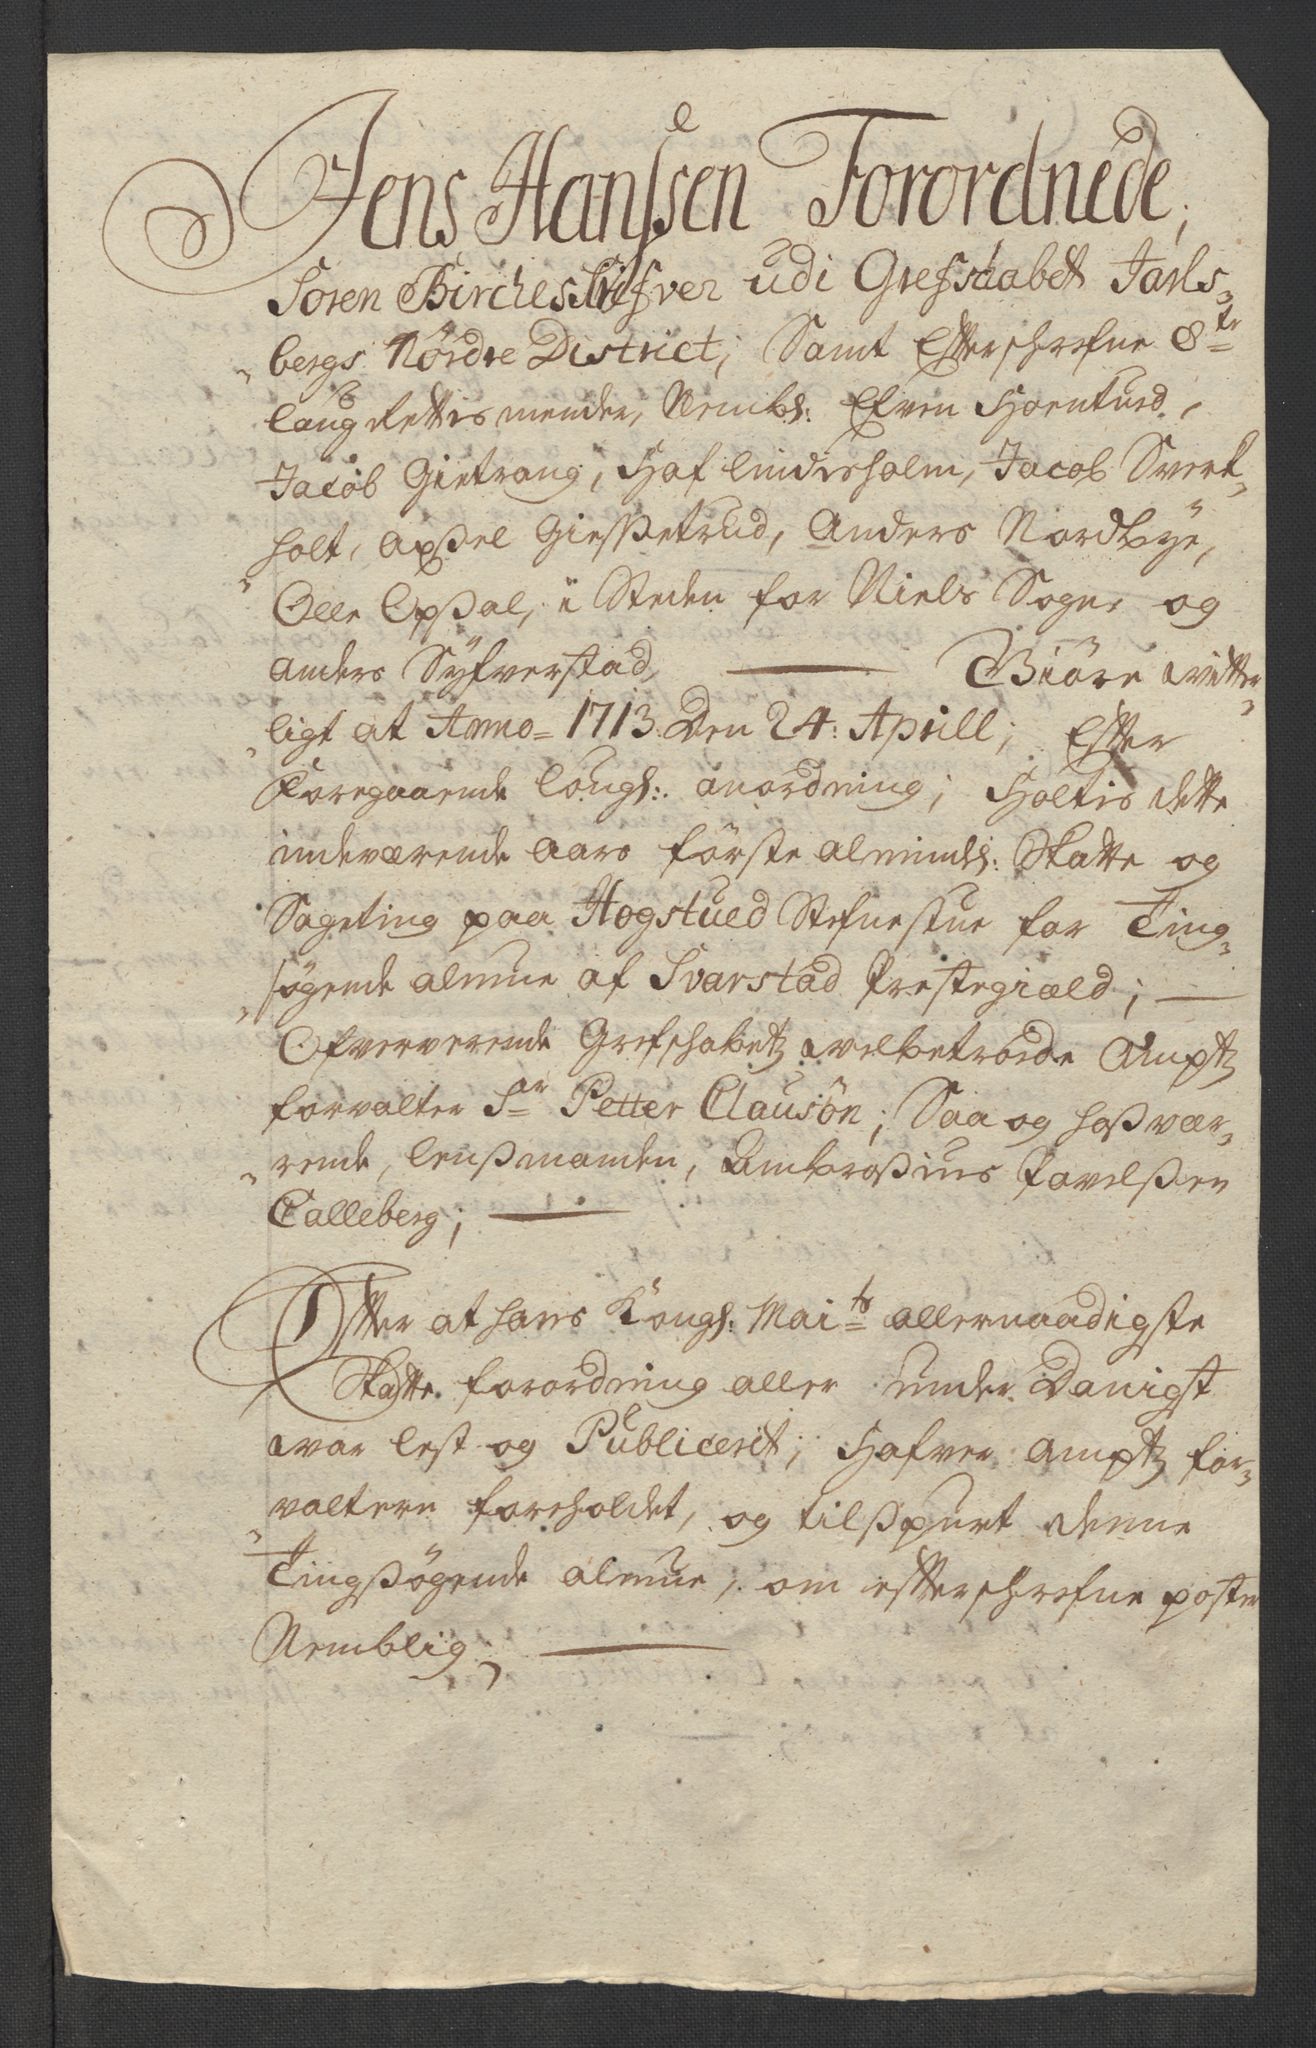 Jens Hanssen Forordnede,
Soren Bircheskrifver udi Grefschabet Jarls-
bergs Nørdre District; Samt Efterschrefne 8te
laug Rettis mender, Nembl: Efven Hoentued,
Jacob Gietrang, Haf lindisholm, Jacob Svert-
holt, Axsel Giesßetrud, Anders Nordbye,
Olle Opsal, i Steden for Niels Soger og
Anders Syfverstad, Giøre witter
ligt at Anno= 1713. Den 24: Aprill; Efter
Foregaaende Longl: anordning; Holtis dette
indeværende aars første almindl: Skatte og
Sageting paa Hogstued Stefnestue for Ting-
søgende almue af Svarstad Prestegiæld;
Ofververende Grefschabetz welbetroede Amptz
forvalter Sr Petter Clausøn; Saa og hosvær-
rende, lensmanden, Ambrosius Pavelßen
Calleberg;
Efter at hans Kongl: Maits allernaadigste
Skatte forordning aller under Danigst
war lest og Publicerit; Hafver Amptz for-
valteren foreholdet, og tilspurt denne
Tingsøgende almue, om efterschrefne poster
Nemblig;